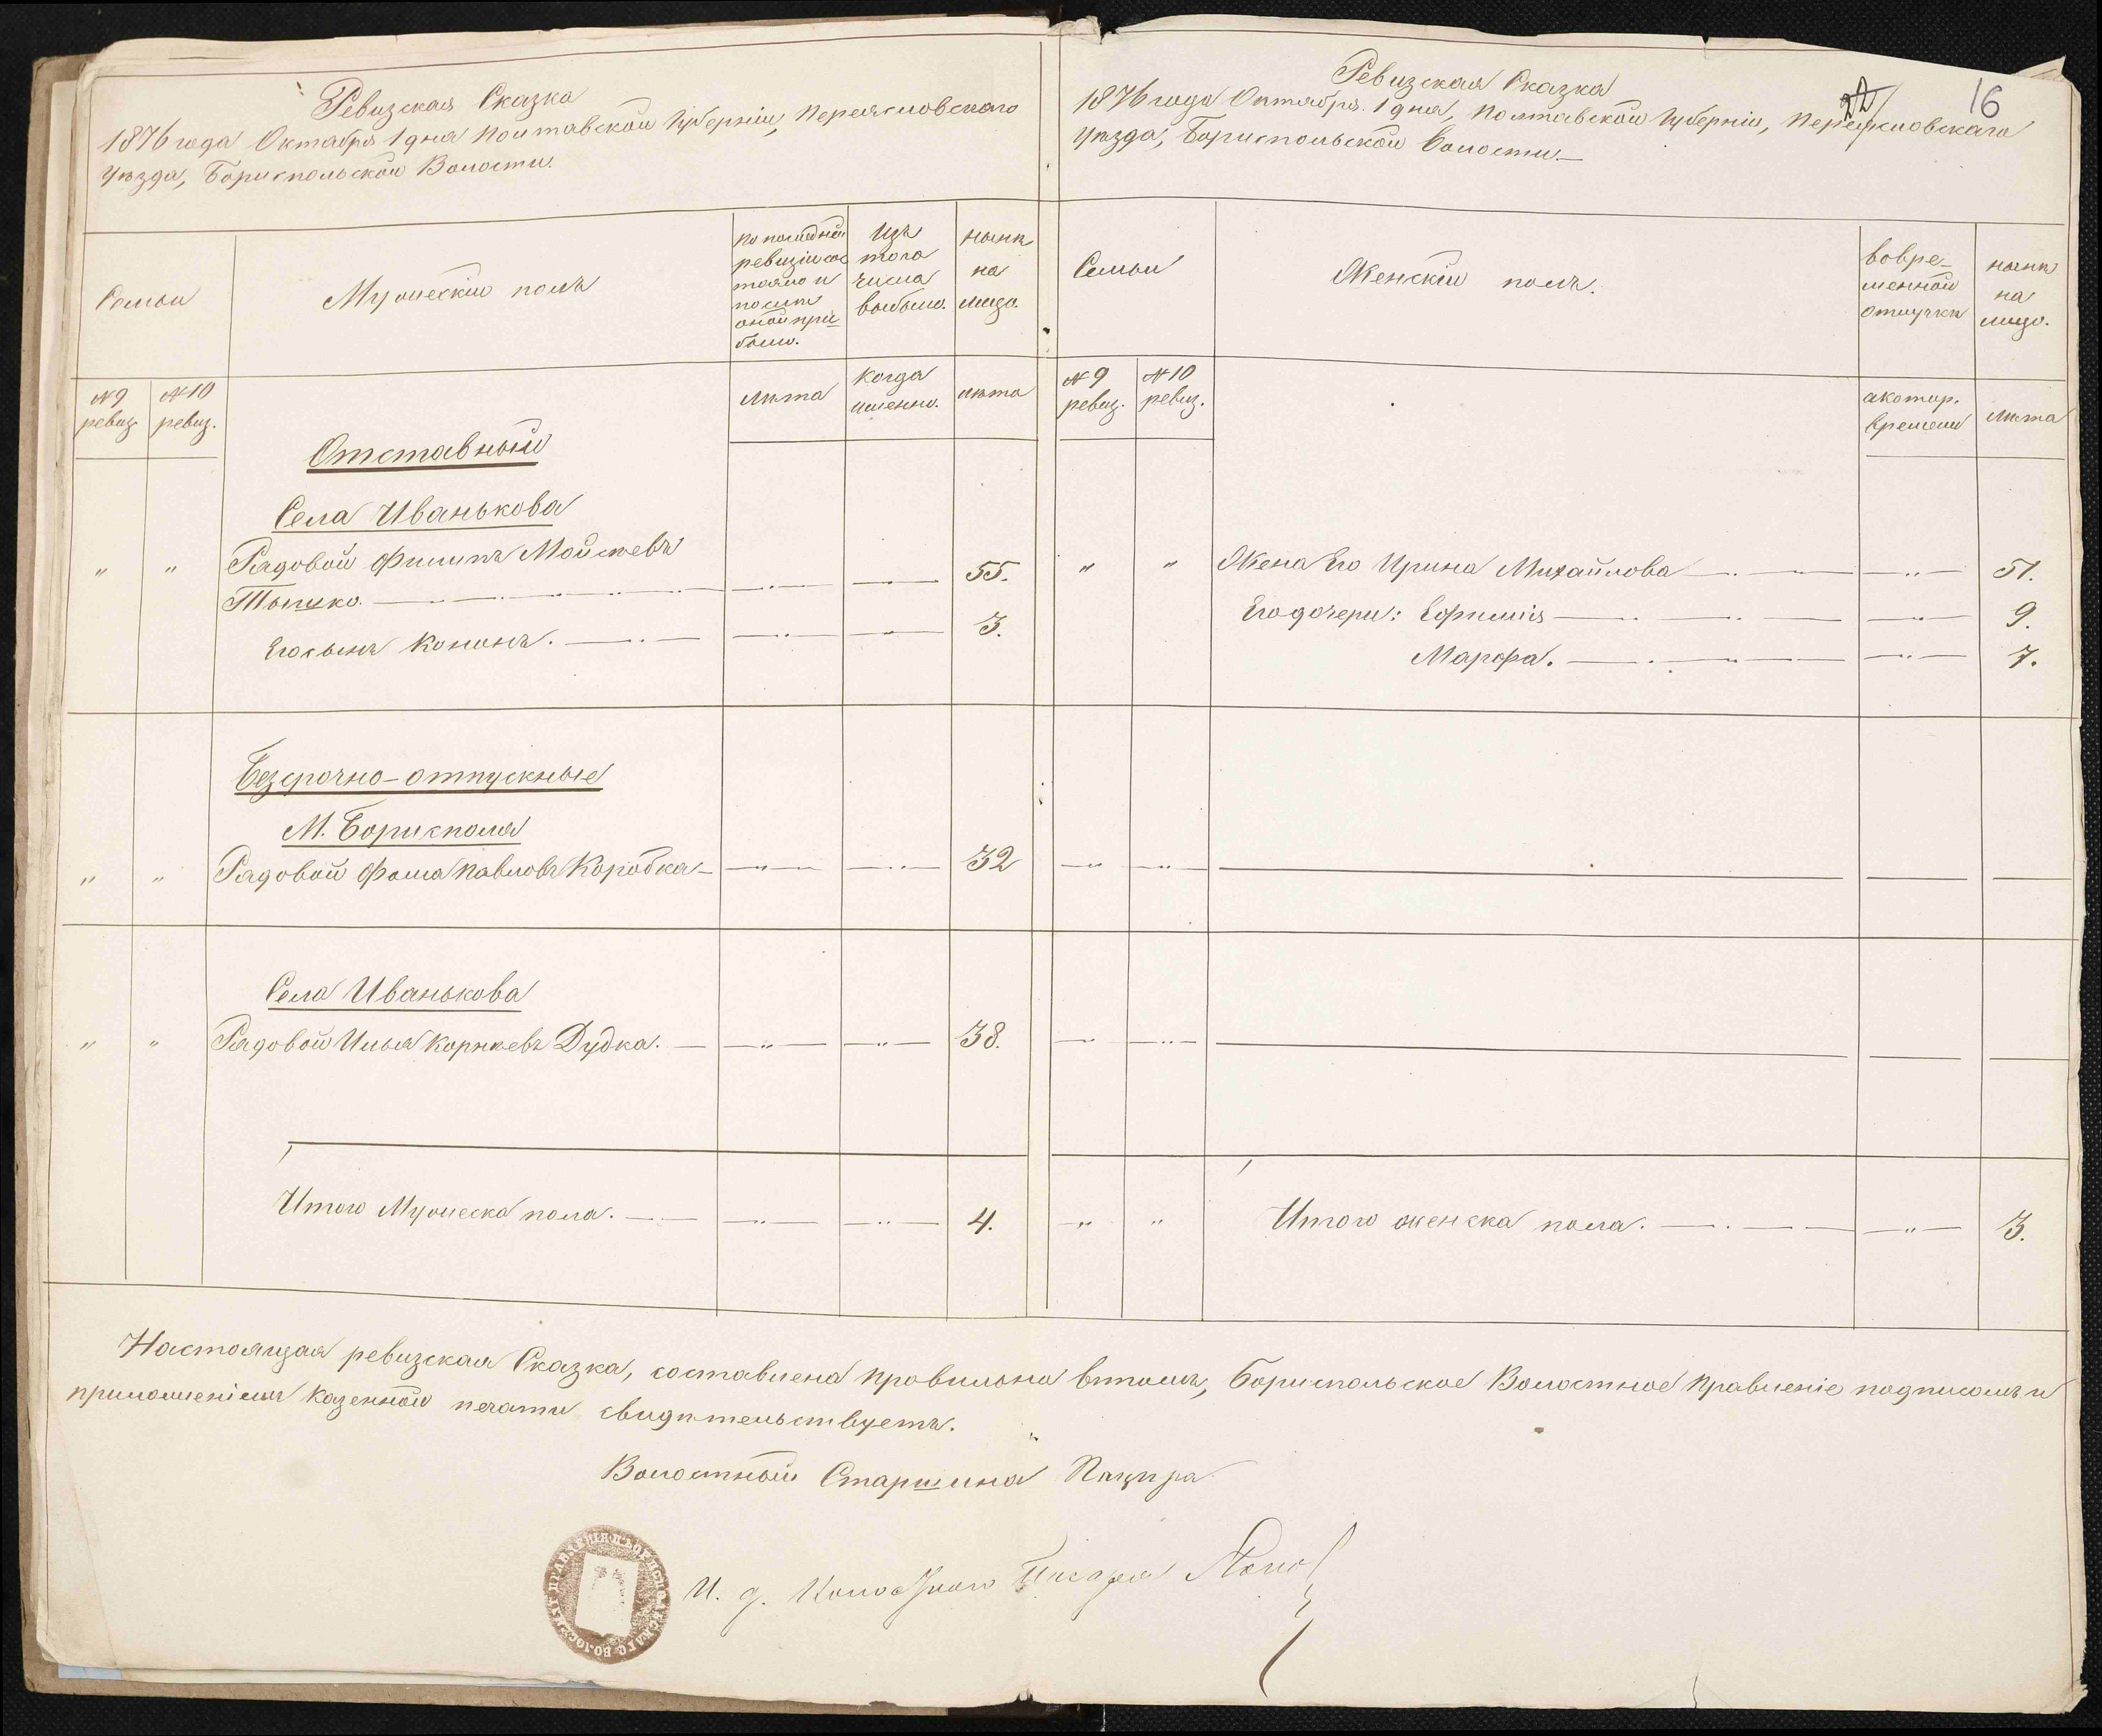 Ревизская Сказка
1876 года Октября 1 дня Полтавской Губерніи, Переясловскаго
Уѣзда, Бориспольской Волости.
Семьи
Мужескій полъ
По последней
ревизіи сос
тояло и
после
оной при
было.
Изъ
того
числа
выбыло.
нынѣ
на
лицо.
№ 9
ревиз.
№ 10
ревиз.
Лѣта
Когда
именно.
лѣта
Отставные
Села Иванькова
" " Рядовой Филипъ Мойсѣевъ
Тышко. 55.
Его сынъ Кононъ. 3.
Безсрочно-отпускные
М. Борисполя
" " Рядовой Фома Павловъ Коробка 32
Села Иванькова
" " Рядовой Илья Корнѣевъ Дудка. 38.
Итого Мужеска пола. 4.
22
16
Ревизская Сказка
1876 года Октября 1 дня, Полтавской Губерніи, Переясловскаго
Уѣзда, Бориспольской Волости
Семьи
Женскій полъ.
во вре-
менной
отлучкѣ
нынѣ
на
лицо.
№ 9
ревиз.
№ 10
ревиз.
с котор.
времени
Лѣта
" " Жена Его Ирина Михайлова 51.
Его дочери: Ефимія 9.
Марфа. 7.
" " Итого женска пола. 3.
Настоящая ревизская Сказка, составлена правильно втомъ, Бориспольское Волостное Правленіе подписомъ и
приложеніемъ Казенной печати свидѣтельствуетъ.
Волостный Старшина
И. д. Волостного Писаря